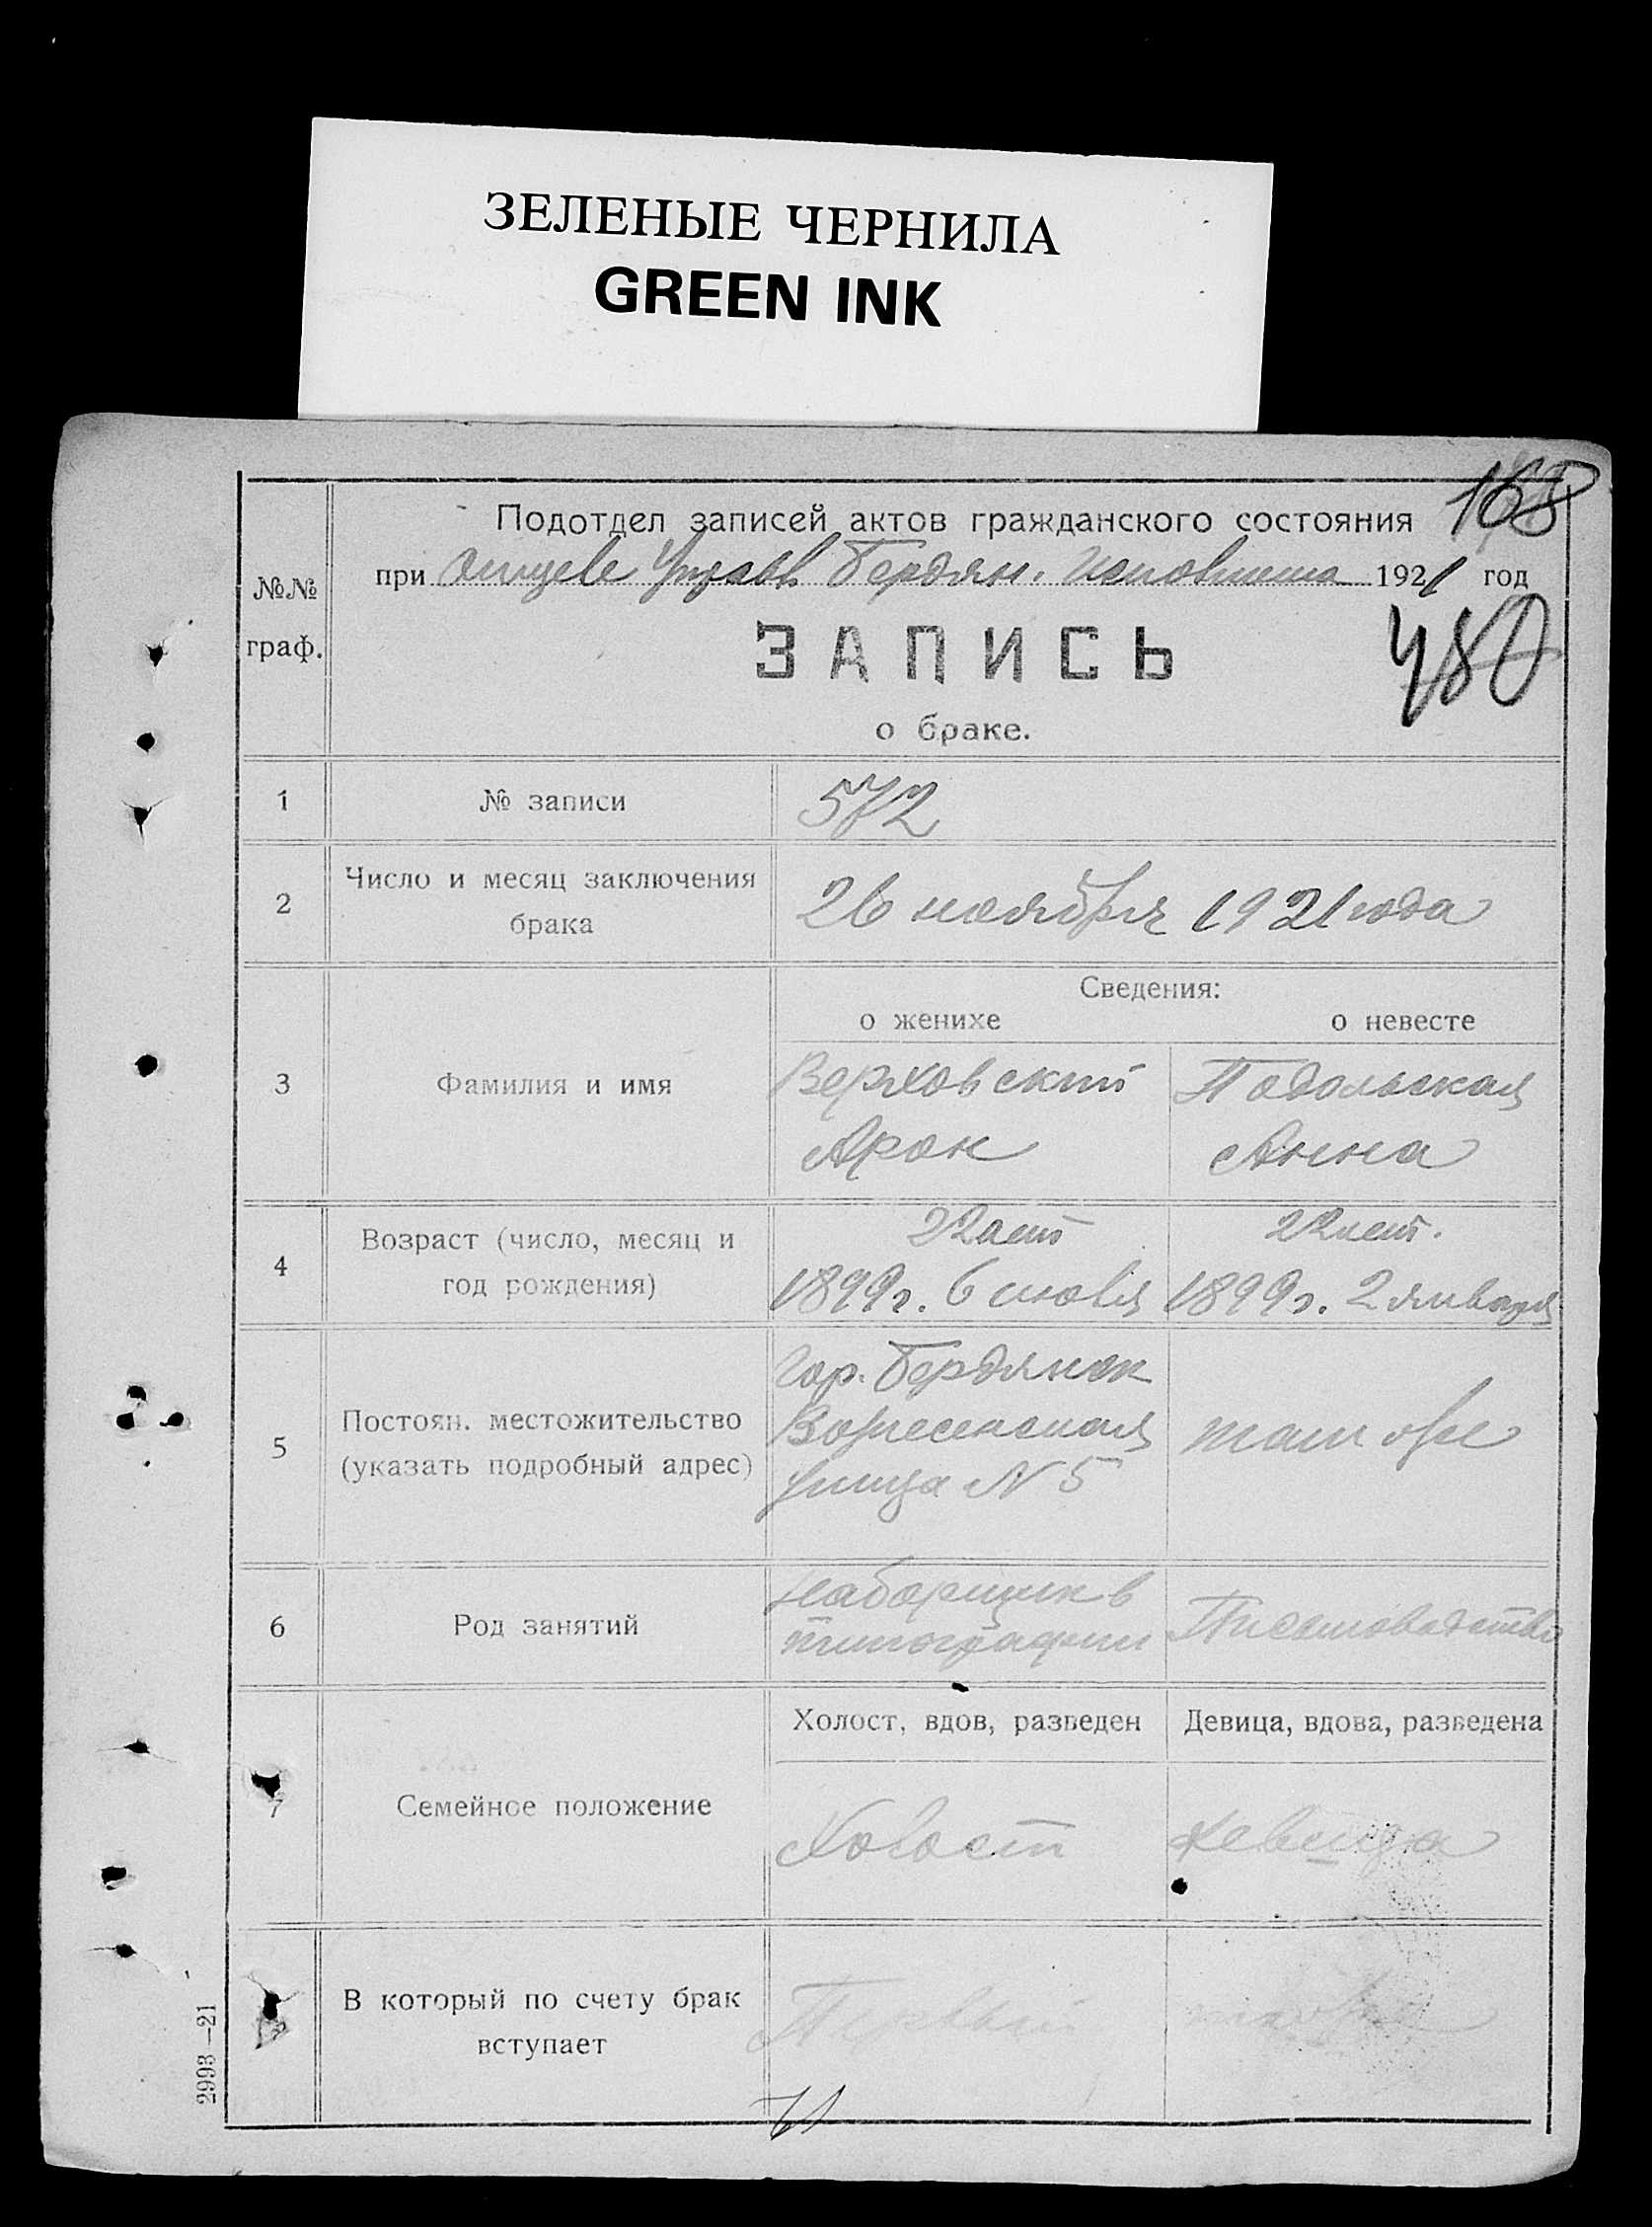 ЗЕЛЕНЫЕ ЧЕРНИЛА
GREEN INK
168
Подотдел записей актов гражданского состояния
при отделе Управ. Бердян. Исполкома 1921 год
№№
граф.
ЗАПИСЬ
480
о браке.
1 № записи 572
2 Число и месяц заключения
брака
26 ноября 1921 года
Сведения:
о женихе о невесте
3 Фамилия и имя
Верховский Подольская
Арон Анна
4 Возраст (число, месяц и
год рождения)
22 лет 22 лет.
1899 г. 6 июля 1899 г. 2 января
5 Постоян. местожительство
(указать подробный адрес)
Гор. Бердянск
Вознесенская
улица N 5
там же
6 Род занятий
наборщик в
типографии
Письмоводство
Холост, вдов, разведен Девица, вдова, разведена
7 Семейное положение
Холост девица
В который по счету брак
вступает
Первый
2993—21